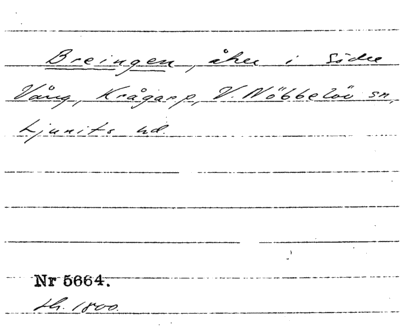 Breingen, åker i Södre
Vång, Krågarp, V. Nöbbelöv sn,
Ljunits hd
Nr 5664.
sk. 1800